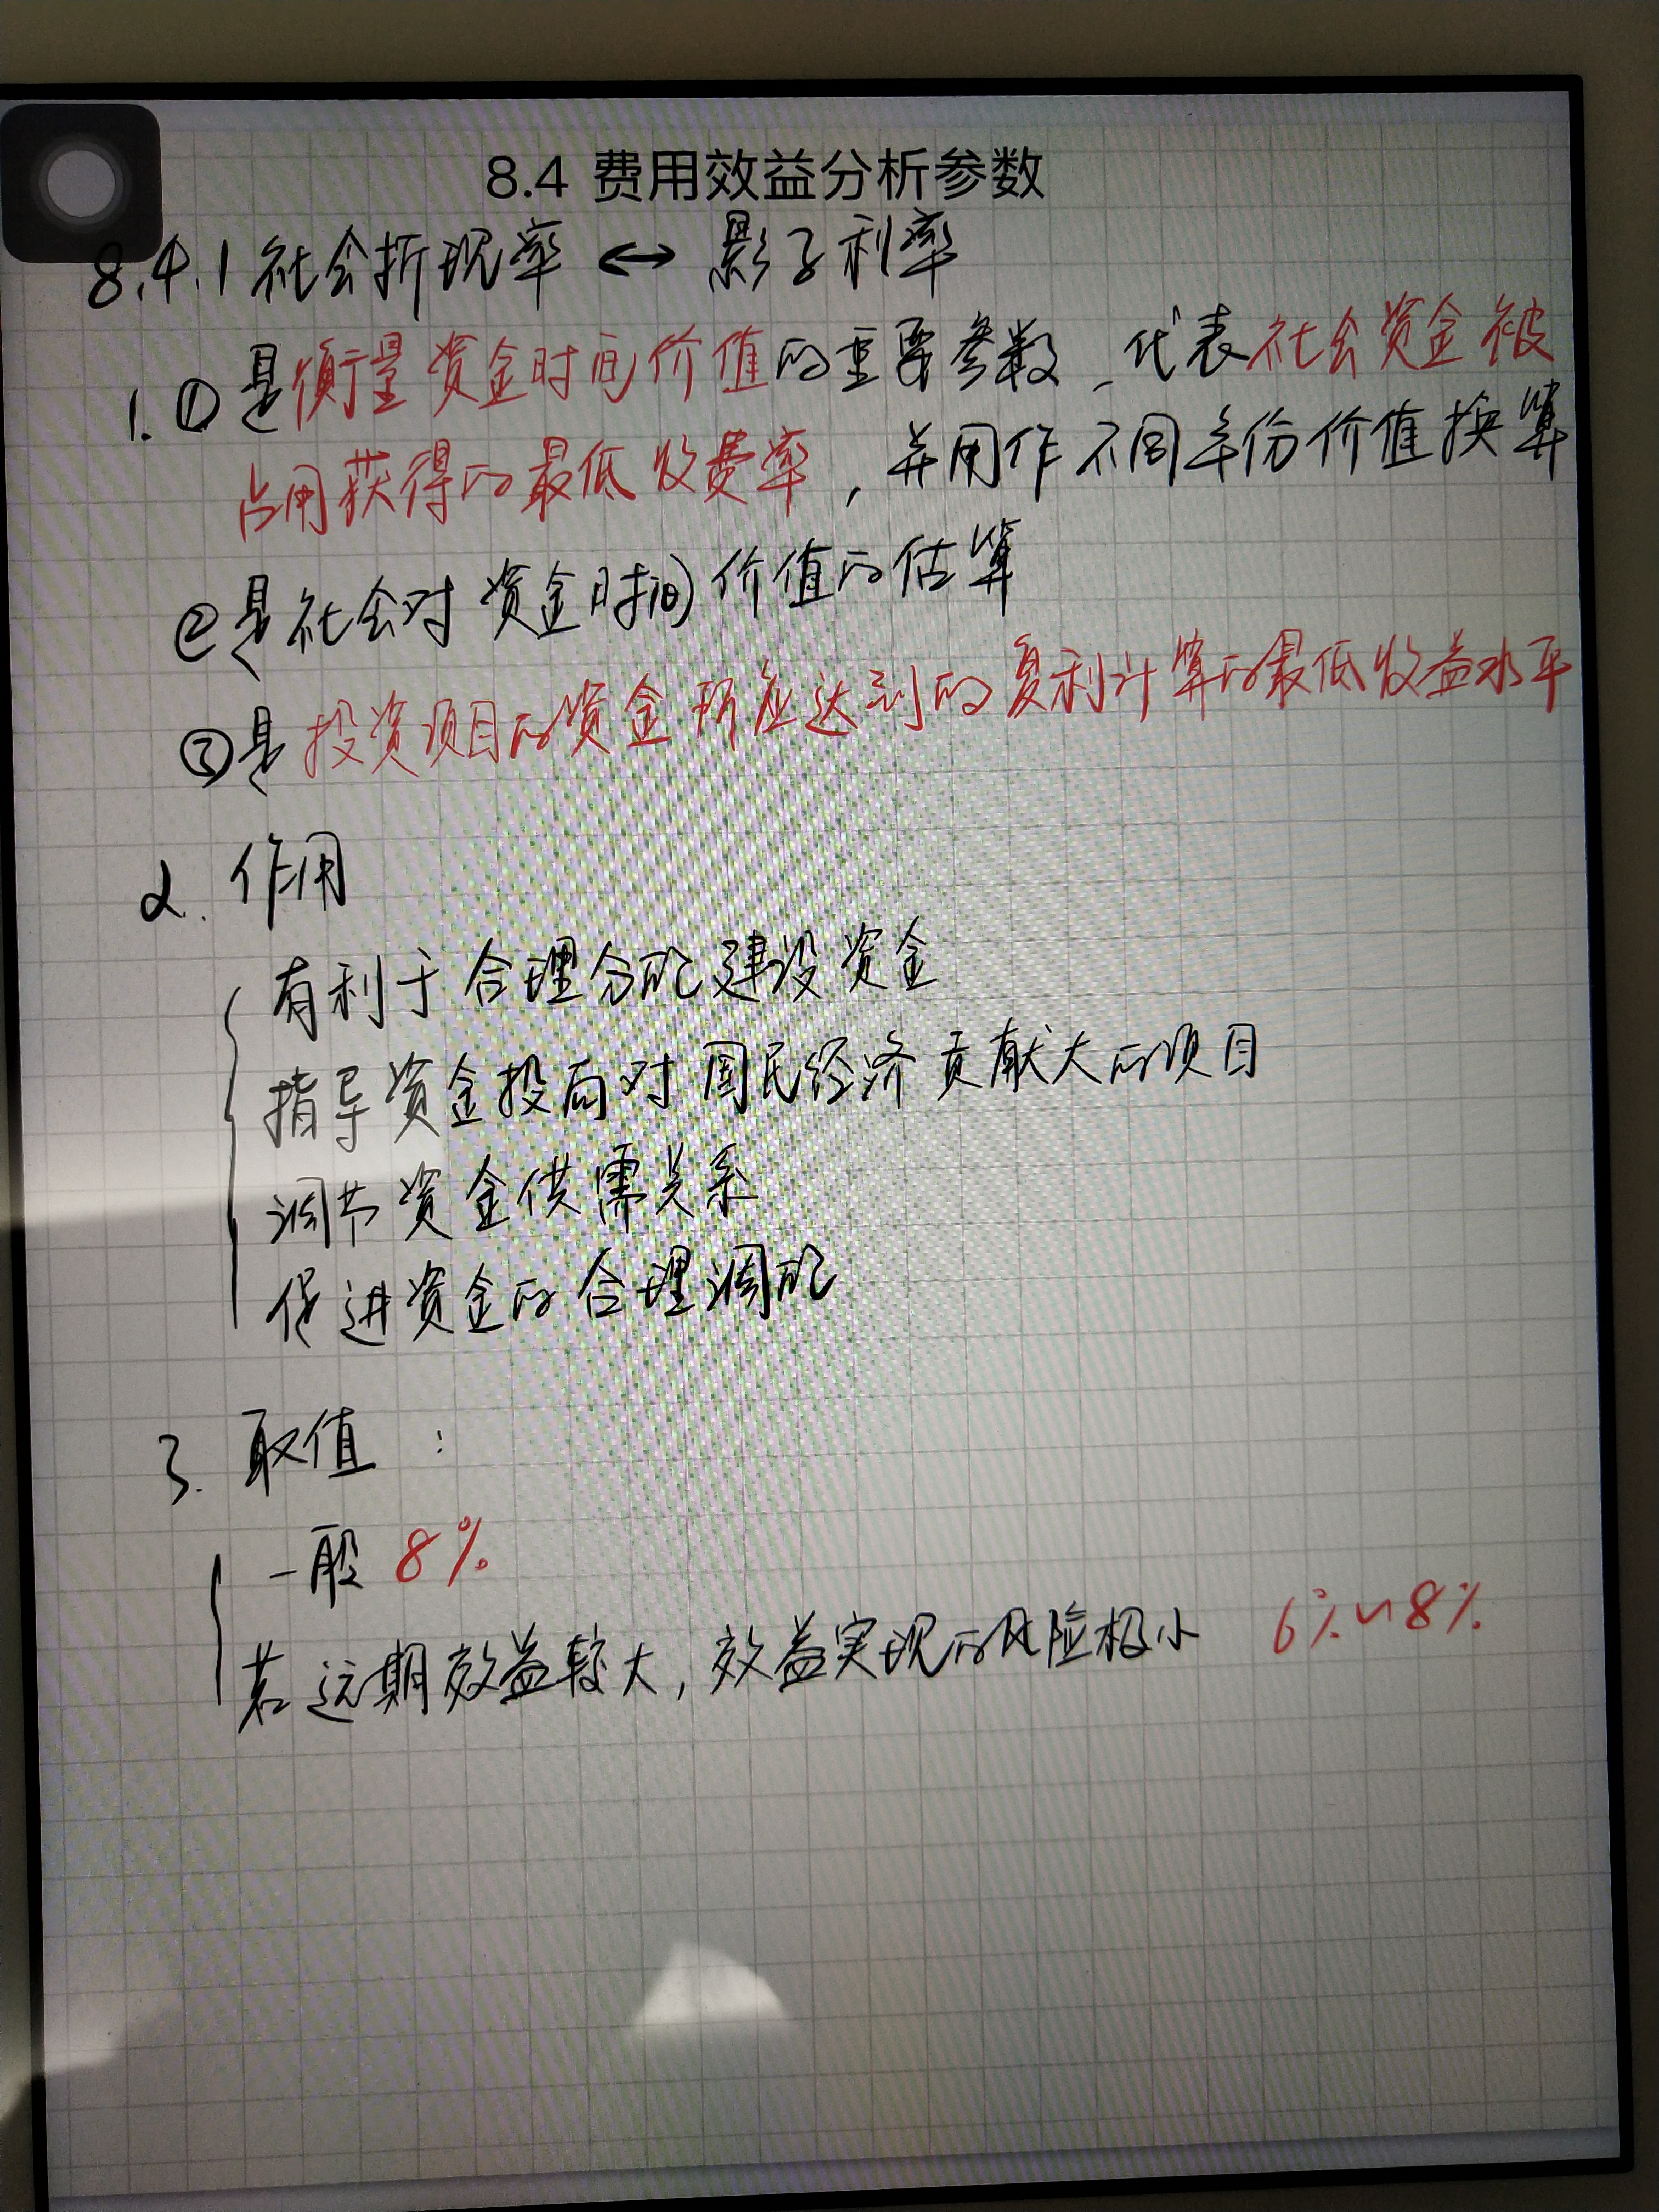 8.4 费用效益分析参数
8.4.1 社会折现率 ↔ 影子利率
1. ① 是衡量资金时间价值的重要参数，代表社会资金被
占用获得的最低收费率，并用作不同年份价值换算
② 是社会对资金时间价值的估算
③ 是投资项目的资金所应达到的复利计算的最低收益水平
2. 作用
有利于合理分配建设资金
指导资金投向对国民经济贡献大的项目
调节资金供需关系
促进资金的合理调配
3. 取值：
一般 8%
若远期效益较大，效益实现的风险极小 6%~8%